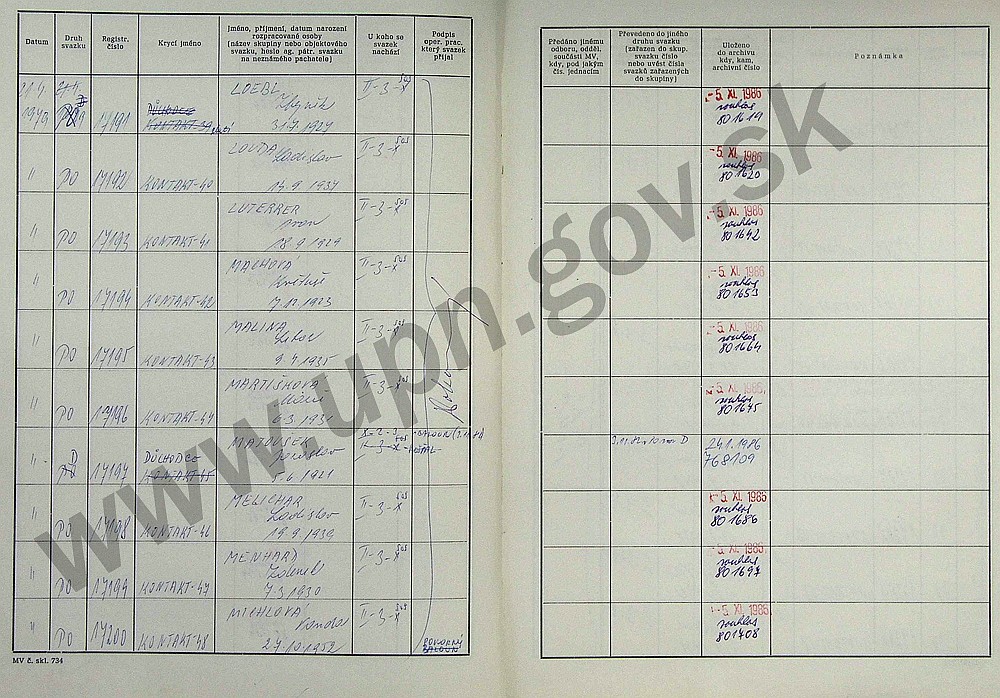 Datum
Druh svazku
Registr. číslo
Krycí jméno
Jméno, příjmení, datum narození
rozpracované osoby
(název skupiny nebo objektového
svazku, heslo ag. pátr. svazku
na neznámého pachatele)
U koho se
svazek
nachází
Podpis
oper. prac.
který svazek
přijal
Předáno jinému
odboru, odděl.
součásti MV,
kdy, pod jakým
čís. jednacím
Převedeno do jiného
druhu svazku
(zařazen do skup.
svazku číslo
nebo uvést čísla
svazků zařazených
do skupiny)
Uloženo
do archivu
kdy, kam,
archivní číslo
Poznámka
17191 KONTAKT-39 LOEBL Zbyněk 31.7.1927 II-3-X
-5. XI. 1986 souhlas 801619
" PO 17192 KONTAKT-40 LOUDA Ladislav 14.9.1937 II-3-X
-5. XI. 1986 souhlas 801620
" PO 17193 KONTAKT-41 LUTERRER 18.9.1929 II-3-X
-5. XI. 1986 souhlas 801642
" PO 17194 KONTAKT-42 MACHOVÁ Květuše 17.12.1923 II-3-X
-5. XI. 1986 souhlas 801653
" PO 17195 KONTAKT-43 MALINA 9.4.1935 II-3-X
-5. XI. 1986 souhlas 801664
" PO 17196 KONTAKT-44 MARTIŠKOVÁ 6.3.1931 II-3-X
-5. XI. 1986 souhlas 801675
" D 17197 DŮCHODCE KONTAKT-45 MATOUŠEK Jaroslav 5.6.1921 II-3-X
24.1.1986 768109
" PO 17198 KONTAKT-46 MELICHAR Ladislav 19.9.1939 II-3-X
-5. XI. 1986 souhlas 801686
" PO 17199 KONTAKT-47 MENHARD Zdeněk 7.3.1930 II-3-X
-5. XI. 1986 souhlas 801697
" PO 17200 KONTAKT-48 MICHLOVÁ 27.10.1952 II-3-X
POKORNÝ
BALOUN
-5. XI. 1986 souhlas 801708
MV č. skl. 734
www.upn.gov.sk